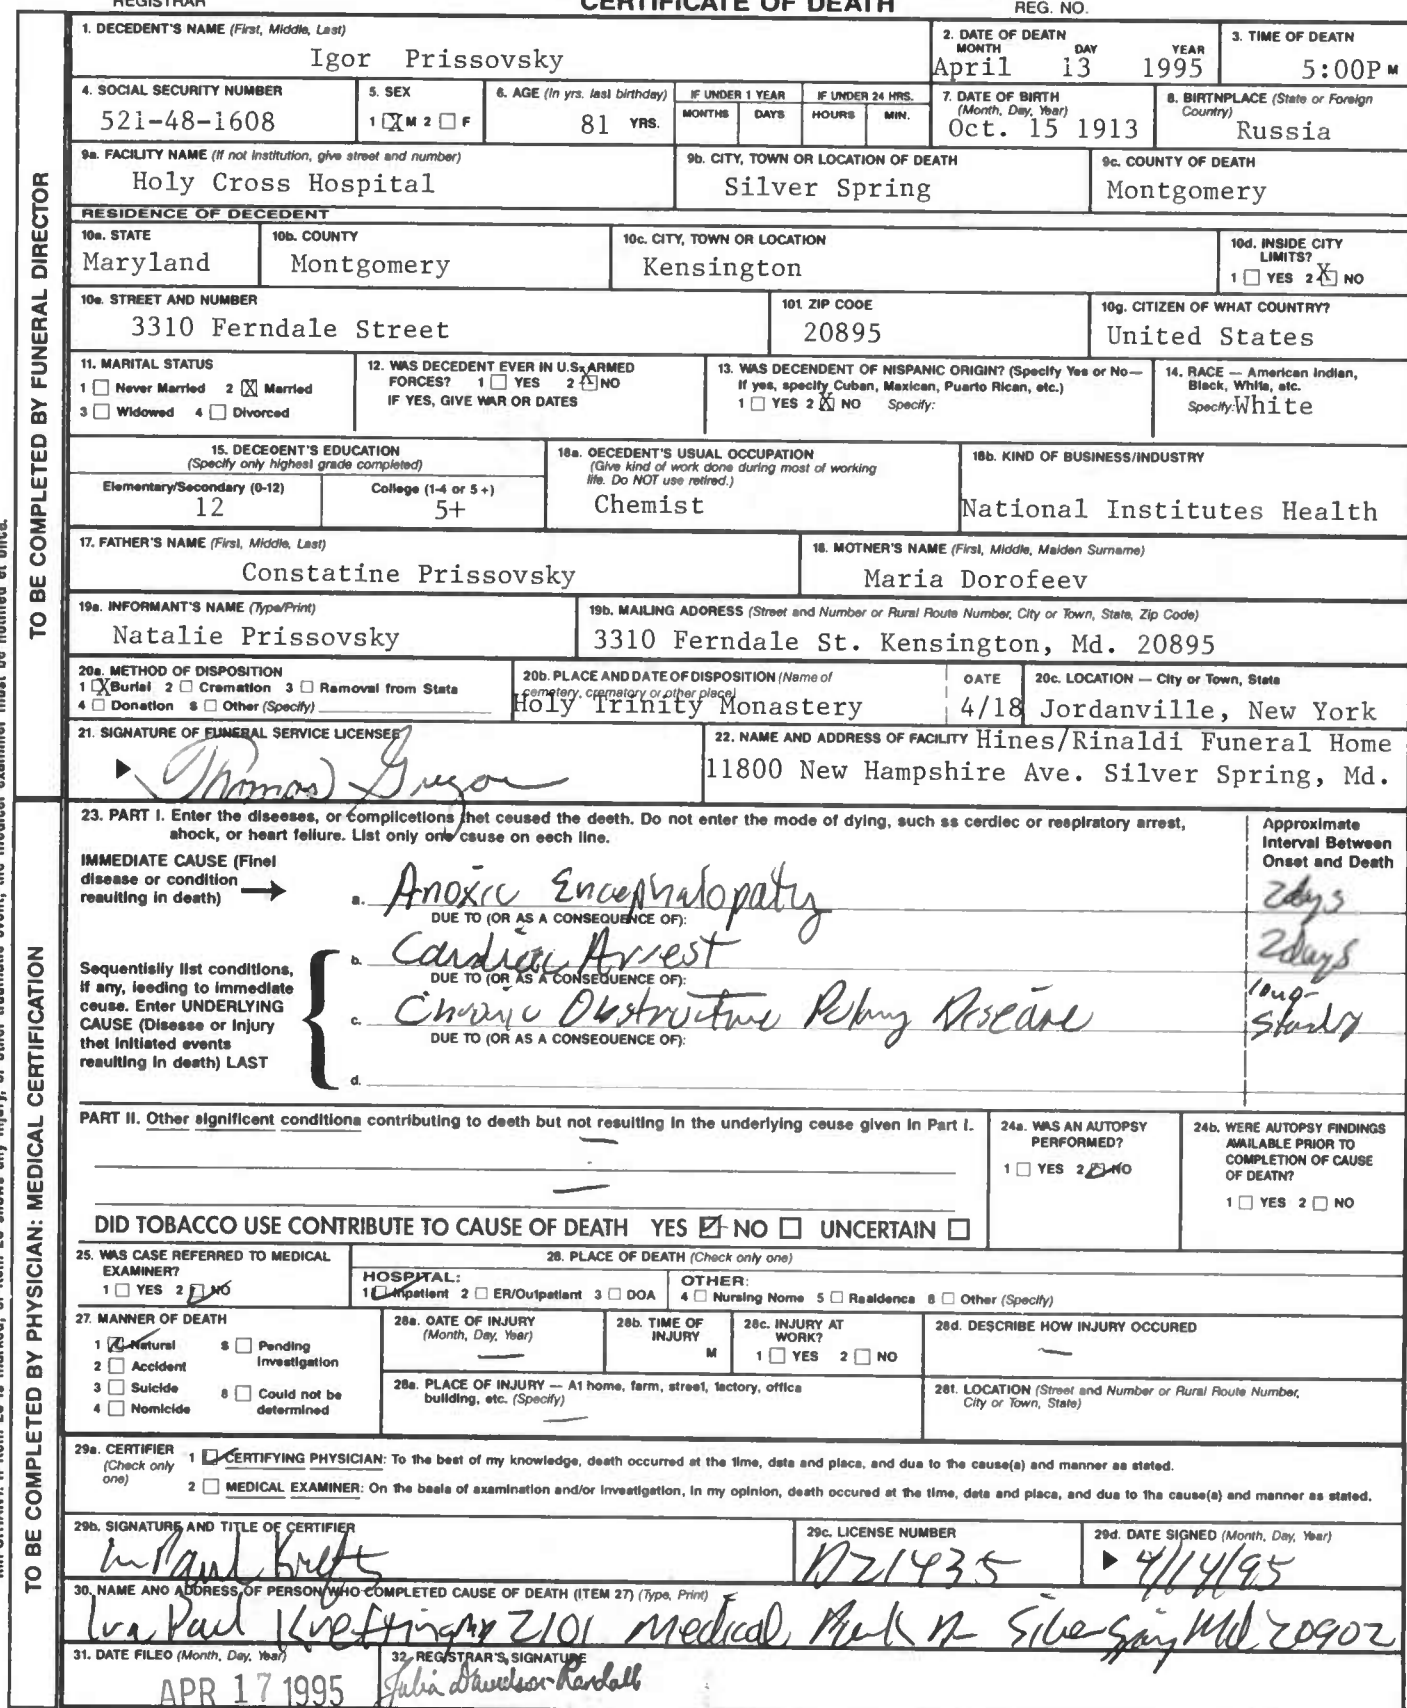 REGISTRAR
CERTIFICATE OF DEATH
REG. NO.
1. DECEDENT'S NAME (First, Middle, Last)
Igor Prissovsky
2. DATE OF DEATH
MONTH DAY YEAR
April 13 1995
3. TIME OF DEATH
5:00P M
4. SOCIAL SECURITY NUMBER
521-48-1608
5. SEX
1 X M 2 F
6. AGE (In yrs. last birthday)
81 YRS.
IF UNDER 1 YEAR
MONTHS DAYS
IF UNDER 24 HRS.
HOURS MIN.
7. DATE OF BIRTH
(Month, Day, Year)
Oct. 15 1913
8. BIRTNPLACE (State or Foreign
Country)
Russia
9a. FACILITY NAME (If not Institution, give street and number)
Holy Cross Hospital
9b. CITY, TOWN OR LOCATION OF DEATH
Silver Spring
9c. COUNTY OF DEATH
Montgomery
RESIDENCE OF DECEDENT
10a. STATE
Maryland
10b. COUNTY
Montgomery
10c. CITY, TOWN OR LOCATION
Kensington
10d. INSIDE CITY
LIMITS?
1 YES 2 X NO
10e. STREET AND NUMBER
3310 Ferndale Street
101. ZIP COOE
20895
10g. CITIZEN OF WHAT COUNTRY?
United States
11. MARITAL STATUS
1 Never Married 2 X Married
3 Widowed 4 Divorced
12. WAS DECEDENT EVER IN U.S. ARMED
FORCES? 1 YES 2 X NO
IF YES, GIVE WAR OR DATES
13. WAS DECENDENT OF NISPANIC ORIGIN? (Specify Yes or No—
If yes, specify Cuban, Maxican, Puarto Rican, etc.)
1 YES 2 X NO Specify:
14. RACE — American Indian,
Black, White, atc.
Specify: White
15. DECEOENT'S EDUCATION
(Specify only highest grade completed)
Elementary/Secondary (0-12)
12
College (1-4 or 5+)
5+
18a. OECEDENT'S USUAL OCCUPATION
(Give kind of work done during most of working
life. Do NOT use retired.)
Chemist
18b. KIND OF BUSINESS/INDUSTRY
National Institutes Health
17. FATHER'S NAME (First, Middle, Last)
Constatine Prissovsky
18. MOTNER'S NAME (First, Middle, Maiden Surname)
Maria Dorofeev
19a. INFORMANT'S NAME (Type/Print)
Natalie Prissovsky
19b. MAILING ADORESS (Street and Number or Rural Route Number, City or Town, State, Zip Code)
3310 Ferndale St. Kensington, Md. 20895
20a. METHOD OF DISPOSITION
1 X Burial 2 Cremation 3 Ramoval from Stata
4 Donation 8 Other (Specify)
20b. PLACE AND DATE OF DISPOSITION (Name of
cemetery, crematory or other place)
Holy Trinity Monastery
OATE
4/18
20c. LOCATION — City or Town, Stata
Jordanville, New York
21. SIGNATURE OF FUNERAL SERVICE LICENSEE
Thomas Gregor
22. NAME AND ADDRESS OF FACILITY Hines/Rinaldi Funeral Home
11800 New Hampshire Ave. Silver Spring, Md.
TO BE COMPLETED BY FUNERAL DIRECTOR
23. PART I. Enter the diseases, or complicetions thet ceused the deeth. Do not enter the mode of dying, such ss cerdiec or respiratory arrest,
ahock, or heart feilure. List only one cause on each line.
Approximate
Interval Between
Onset and Death
IMMEDIATE CAUSE (Finel
disease or condition
reaulting in death)
a. Anoxic Encephalopaty
2days
DUE TO (OR AS A CONSEQUENCE OF):
b. Cardiac Arrest
2days
DUE TO (OR AS A CONSEQUENCE OF):
Sequentisily list conditions,
if any, leeding to immediate
ceuse. Enter UNDERLYING
CAUSE (Disease or Injury
thet Initiated events
reaulting in death) LAST
c. Chronic Obstructive Pulmy Disease
long-
DUE TO (OR AS A CONSEOUENCE OF):
d.
PART II. Other significant conditiona contributing to deeth but not resulting in the underlying ceuse given in Part I.
24a. WAS AN AUTOPSY
PERFORMED?
1 YES 2 NO
24b. WERE AUTOPSY FINDINGS
AVAILABLE PRIOR TO
COMPLETION OF CAUSE
OF DEATN?
1 YES 2 NO
DID TOBACCO USE CONTRIBUTE TO CAUSE OF DEATH YES NO UNCERTAIN
25. WAS CASE REFERRED TO MEDICAL
EXAMINER?
1 YES 2 NO
28. PLACE OF DEATH (Check only one)
HOSPITAL:
1 Inpatient 2 ER/Outpatient 3 DOA
OTHER:
4 Nursing Nome 5 Raaldenca 8 Other (Specify)
27. MANNER OF DEATH
1 Natural 5 Pending
Investigation
2 Accident
3 Suicide 8 Could not be
determined
4 Nomicide
28a. OATE OF INJURY
(Month, Day, Year)
28b. TIME OF
INJURY
M
28c. INJURY AT
WORK?
1 YES 2 NO
28d. DESCRIBE HOW INJURY OCCURED
28a. PLACE OF INJURY — A1 home, farm, street, factory, offica
building, etc. (Specify)
281. LOCATION (Street and Number or Rural Route Number,
City or Town, State)
29a. CERTIFIER
(Check only
one)
1 CERTIFYING PHYSICIAN: To the best of my knowledge, death occurred at the time, data and placa, and dua to the cause(a) and manner as stated.
2 MEDICAL EXAMINER: On the baala of axamination and/or Invastigation, In my opinion, death occured at the time, data and placa, and dua to the cause(a) and manner as stated.
29b. SIGNATURE AND TITLE OF CERTIFIER
29c. LICENSE NUMBER
D21435
29d. DATE SIGNED (Month, Day, Year)
4/14/95
30. NAME ANO ADDRESS OF PERSON WHO COMPLETED CAUSE OF DEATH (ITEM 27) (Type, Print)
Paul Krefting 2101 Medical Park Dr Silver Spring Md 20902
31. DATE FILEO (Month, Day, Year)
APR 17 1995
32. REGISTRAR'S SIGNATURE
Julia Davidson-Randall
TO BE COMPLETED BY PHYSICIAN: MEDICAL CERTIFICATION